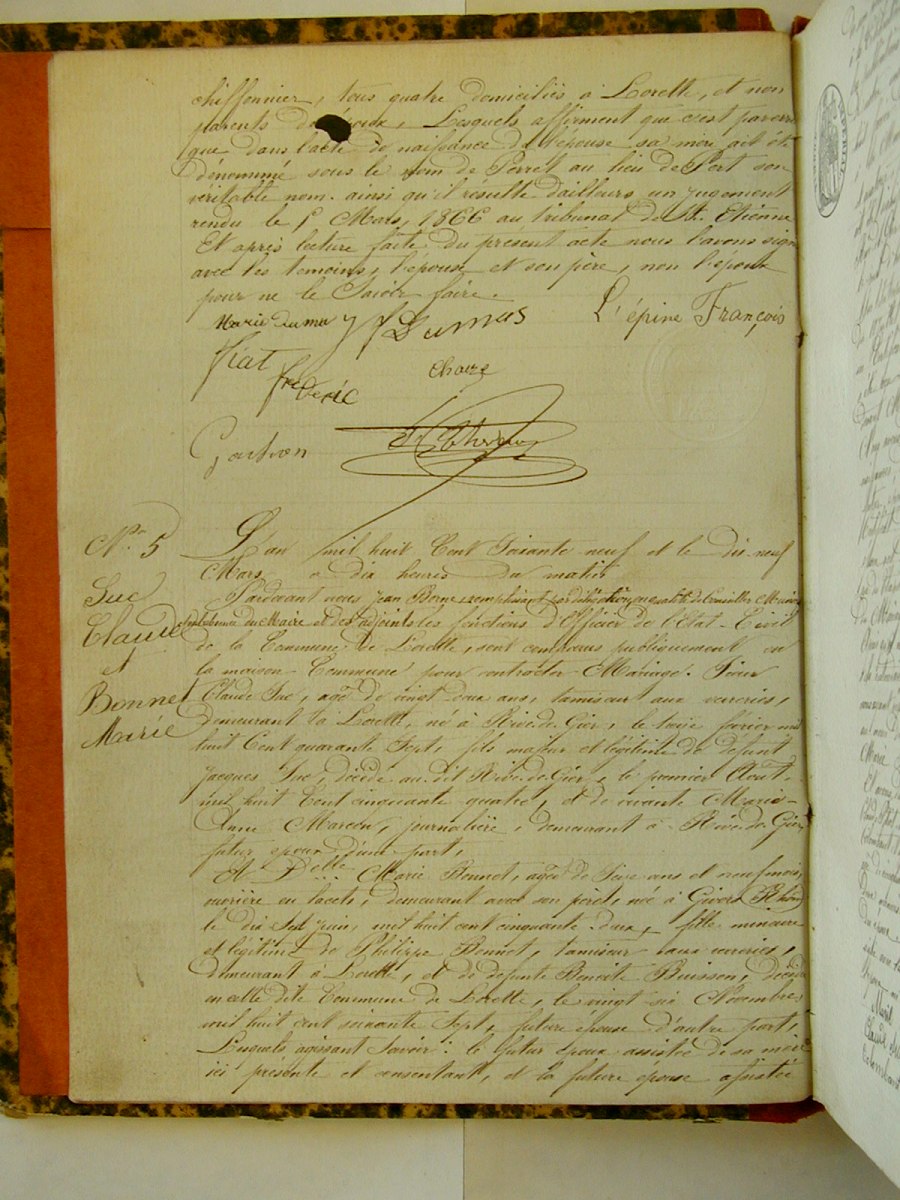 chiffonnier, tous quatre domiciliés à Lorette, et non
parents des époux, Lesquels affirment que c'est par erreur
que dans l'acte de naissance de l'épouse sa mère ait été
dénommé sous le nom de Perret au lieu de Pert son
véritable nom, ainsi qu'il résulte d'ailleurs un jugement
rendu le 1r Mars, 1866 au tribunal de St. Etienne
Et après lecture faite du présent acte nous l'avons signé
avec les témoins, l'épouse et son père, non l'époux
pour ne le Savoir faire.
Marie dumas J Dumas L'épine François
fiat
frederic
Gaition
No 5
Suc
Claude
et
Bonnet
Marie
L'an mil huit Cent Soixante neuf et le dix-neuf
Mars, à dix heures du matin
Pardevant nous Jean Borne, remplissant par délégation en qualité de Conseiller Municipal
du Maire et des adjoints les fonctions d'Officier de l'Etat-Civil
de la Commune de Lorette, sont comparus publiquement en
la maison Commune pour contracter Mariage. Sieur
Claude Suc, agé de vingt-deux ans, tamiseur aux verreries,
demeurant à Lorette, né à Rive de Gier, le treize février mil
huit Cent quarante Sept, fils majeur et légitime de défunt
Jacques Suc, décédé au dit Rive de Gier, le premier Aout
mil huit Cent cinquante quatre, et de vivante Marie-
Anne Marcon, journalière, demeurant à Rive de Gier,
futur époux d'une part,
Et Delle Marie Bonnet, agée de Seize ans et neuf mois,
ouvrière en lacets, demeurant avec son père, née à Givors Rhône
le dix Sept juin, mil huit cent cinquante deux, fille mineure
et légitime de Philippe Bonnet, tamiseur aux verreries,
demeurant à Lorette, et de défunte Benoite Buisson, décédée
en cette dite Commune de Lorette, le vingt six Novembre,
mil huit cent soixante Sept, future épouse d'autre part,
Lesquels agissant Savoir: le futur époux assisté de sa mère
ici présente et consentant, et la future épouse assistée